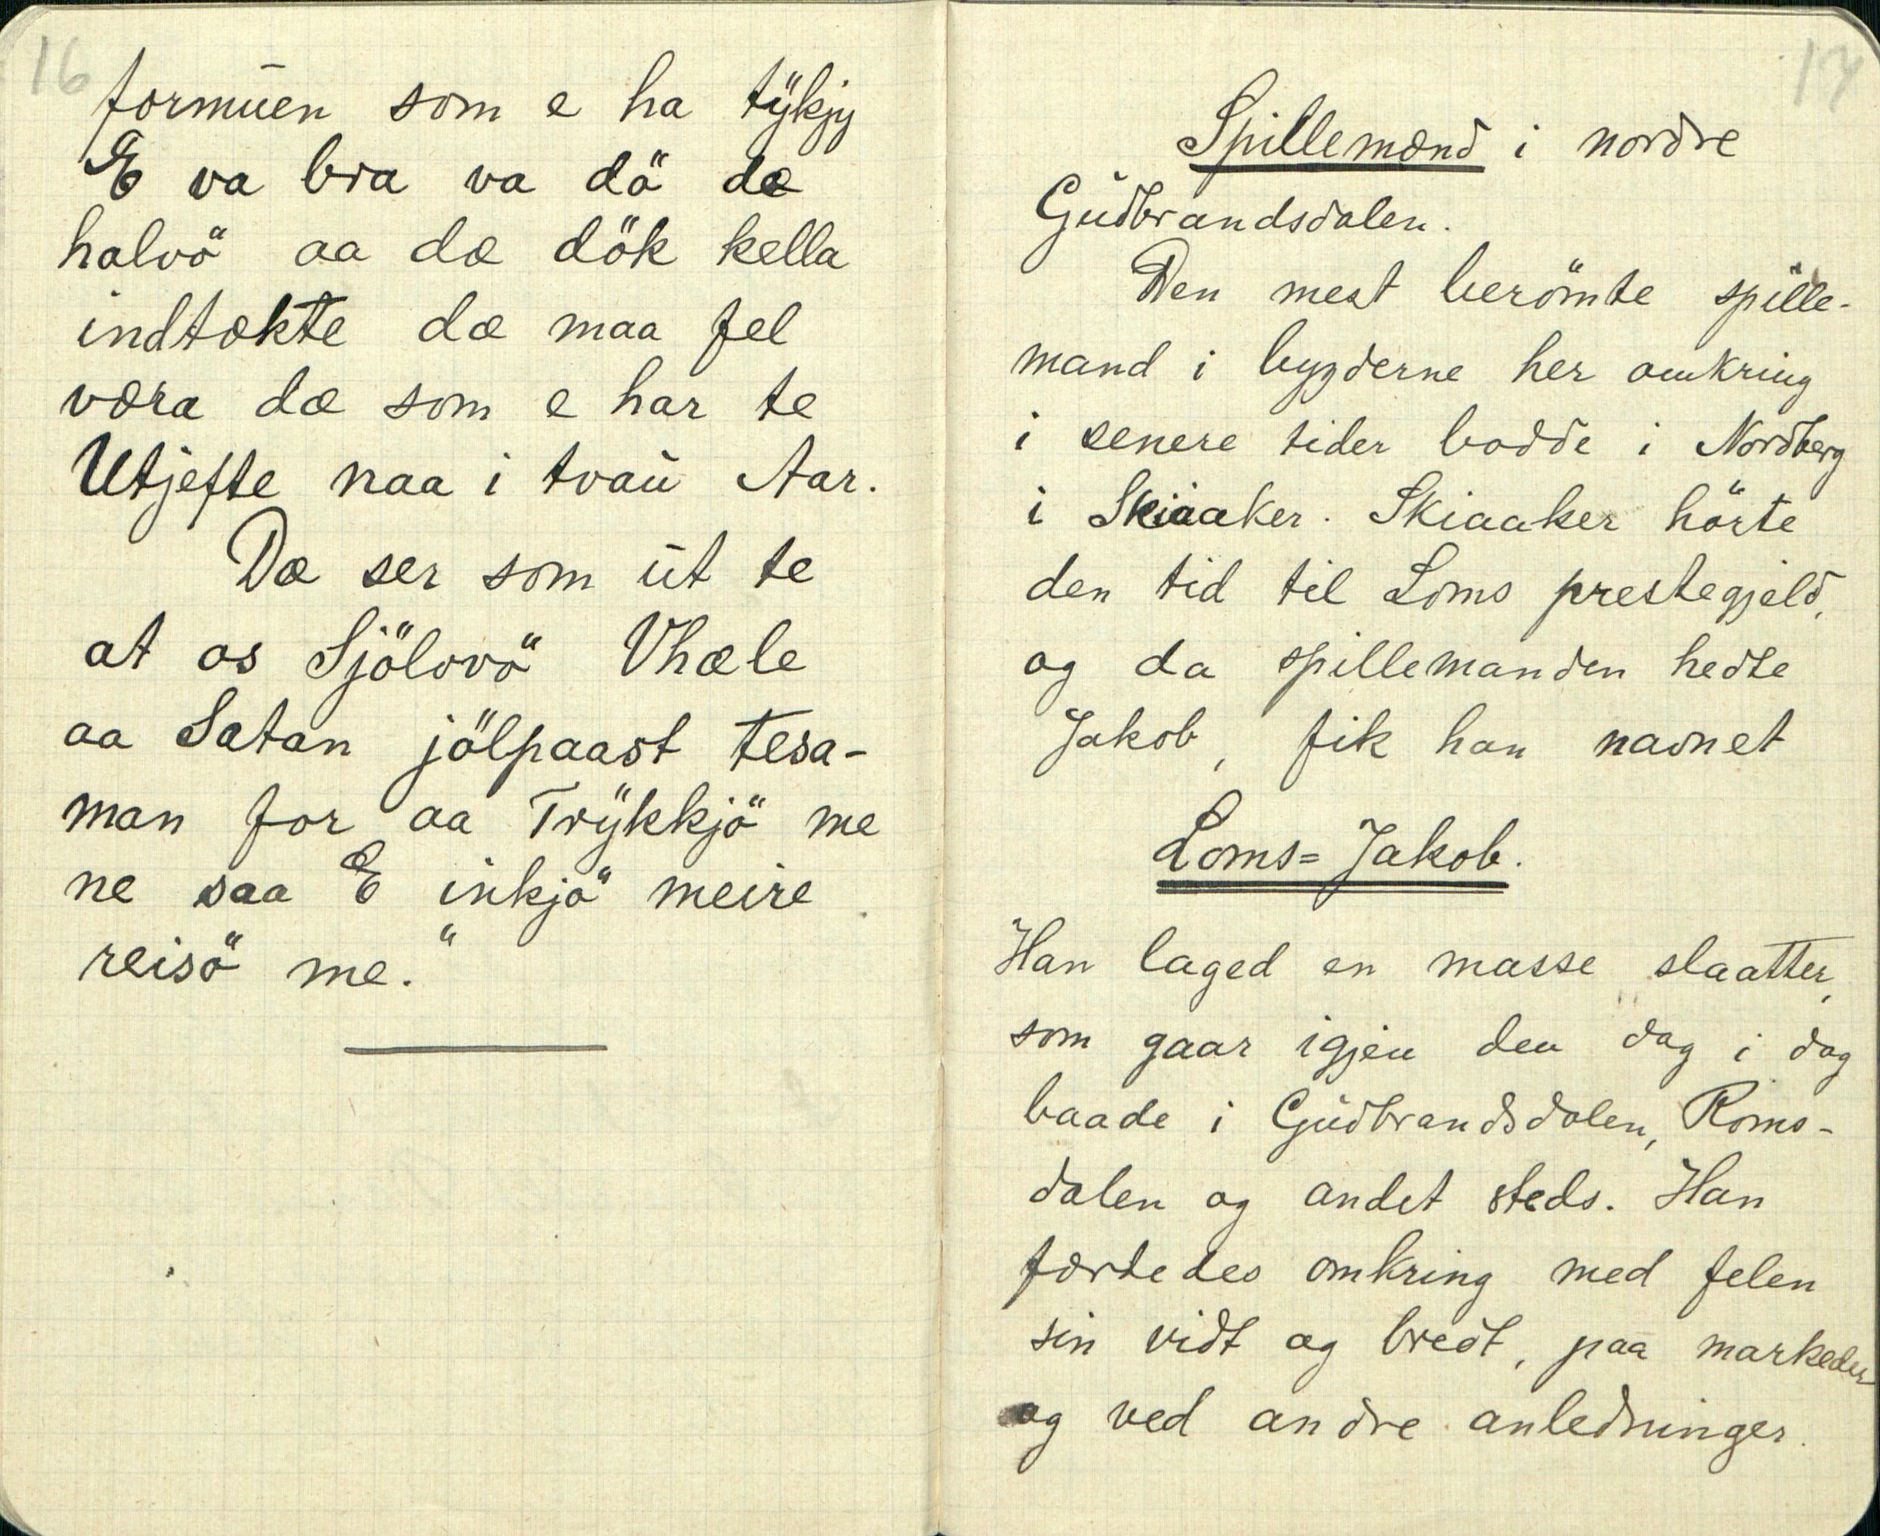 16
formūen som e ha tÿkjy
E va bra va dö dæ
halvö aa dæ dök kella
indtækte dæ maa fel
væra dæ som e har te
Utjefte naa i tvaū Aar.
Dæ ser som ūt te
at os Sjölvö Vhæle
aa Satan jölpaast tesa-
man for aa Trÿkkjö me
ne saa E inkjö meire
reisö me."
17
Spillemænd i nordre
Gudbrandsdalen.
Den mest berömte spille-
mand i bygderne her omkring
i senere tider bodde i Nordberg
i Skiaaker. Skiaaker hörte
den tid til Loms prestegjeld,
og da spillemanden hedte
Jakob, fik han navnet
Loms=Jakob.
Han laged en masse slaatter,
som gaar igjen den dag i dag
baade i Gudbrandsdalen, Roms-
dalen og andet steds. Han
færdedes omkring med felen
sin vidt og bredt, paa markeder
og ved andre anledninger.